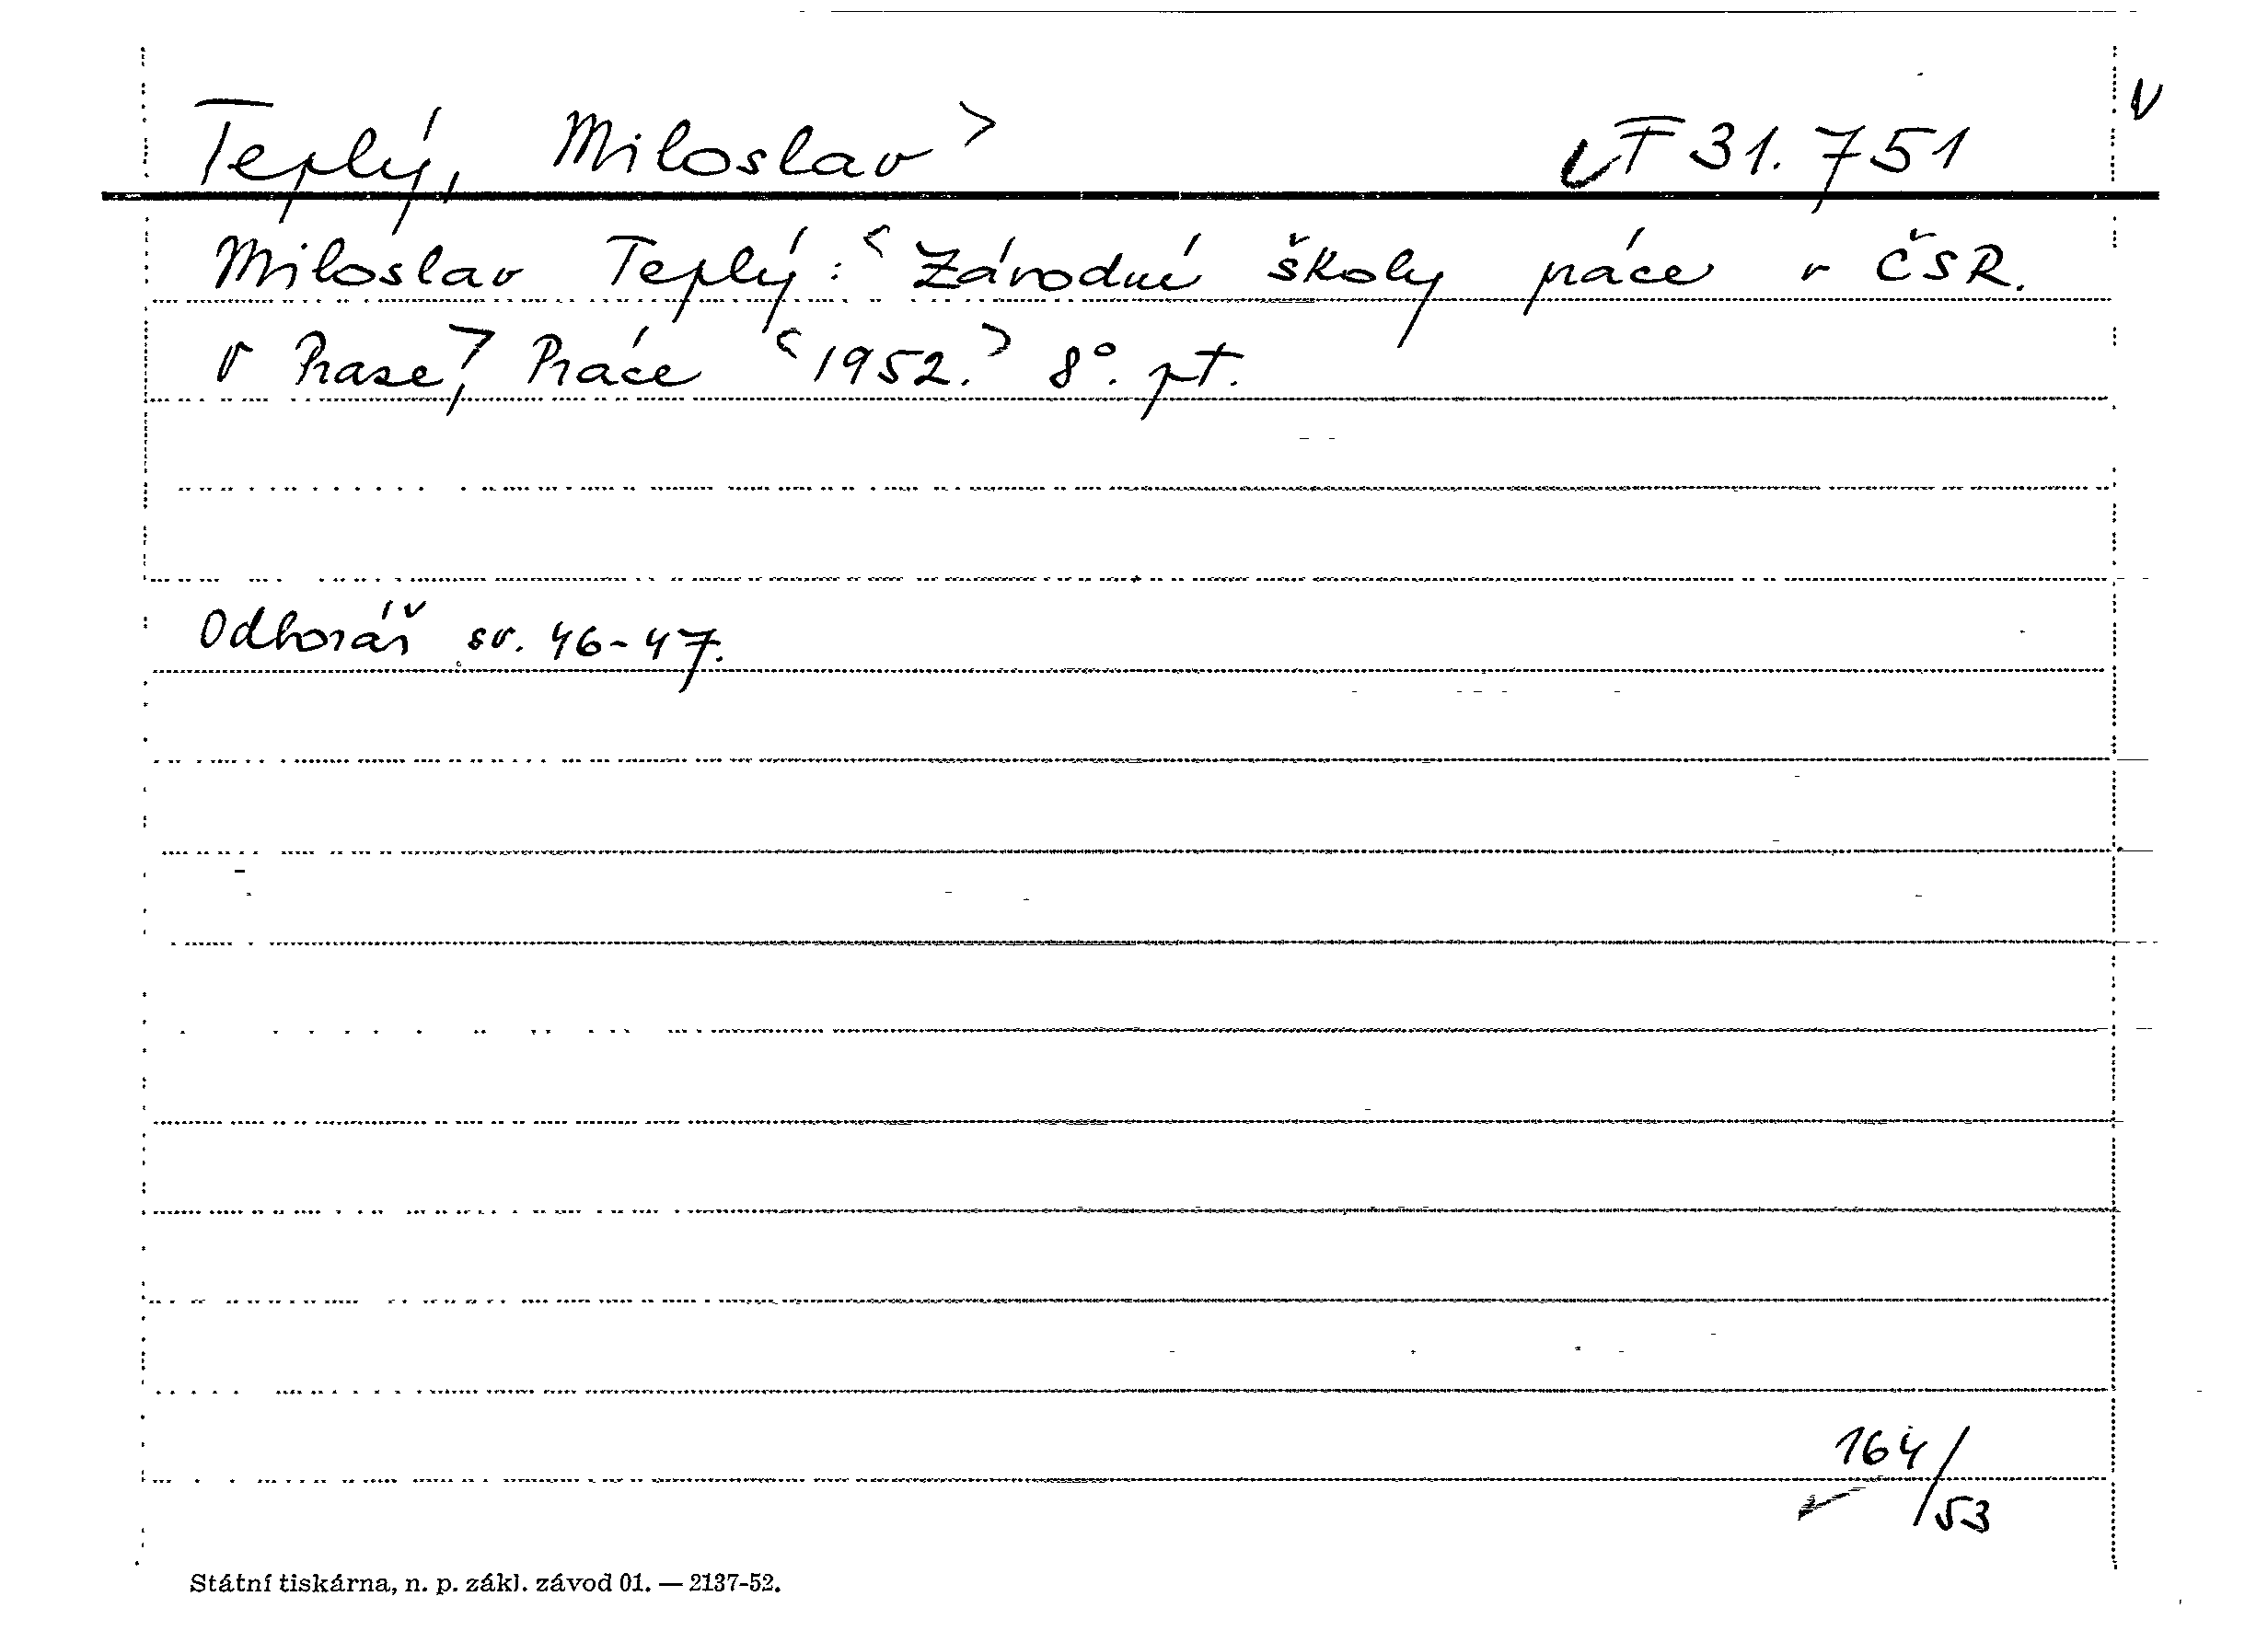 Teplý, Miloslav> F 31.751
Miloslav Teplý: <Závodní školy práce v ČSR.
V Praze,> Práce <1952.> 8°. pt.
Odborář sv. 46-47.
164/53
Státní tiskárna, n. p. zákl. závod 01. — 2137-52.